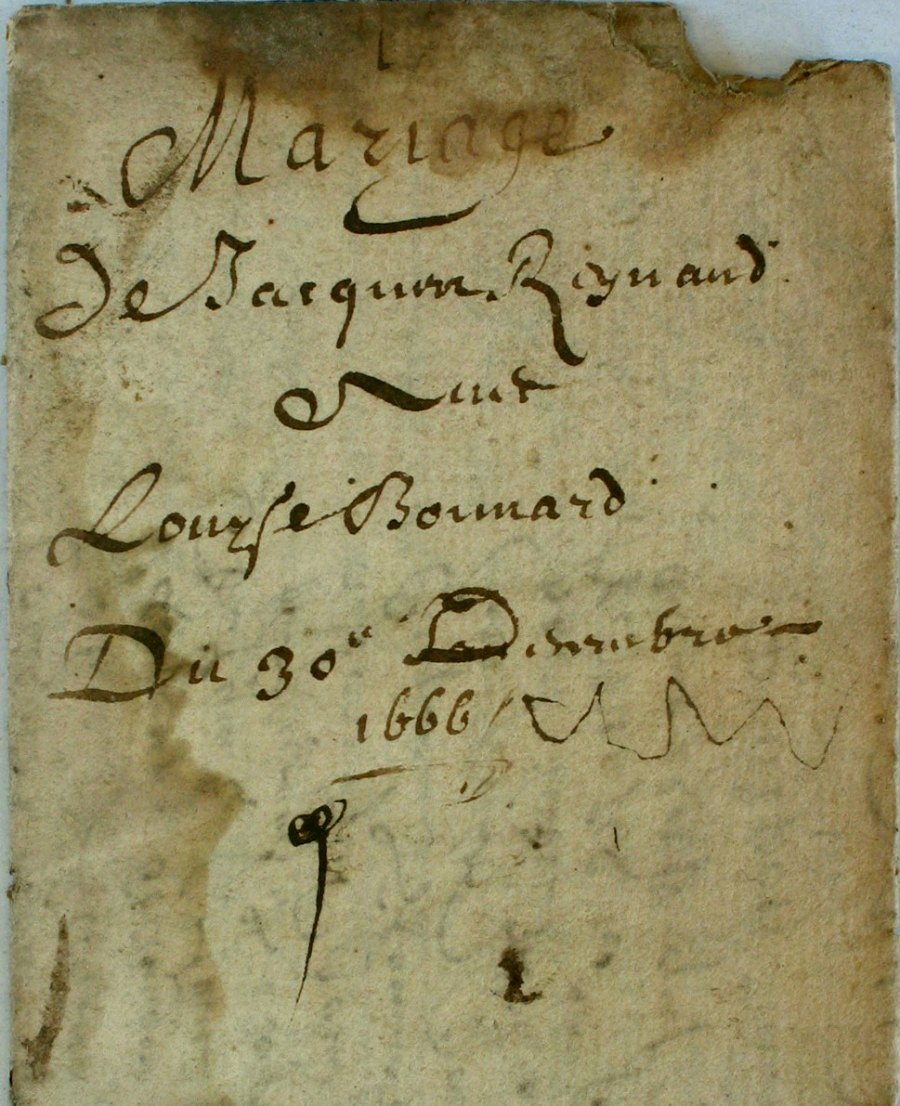 Mariage
De Jacques Reynaud
Auec
Louyse Bonnard
Du 30e Decembre
1666